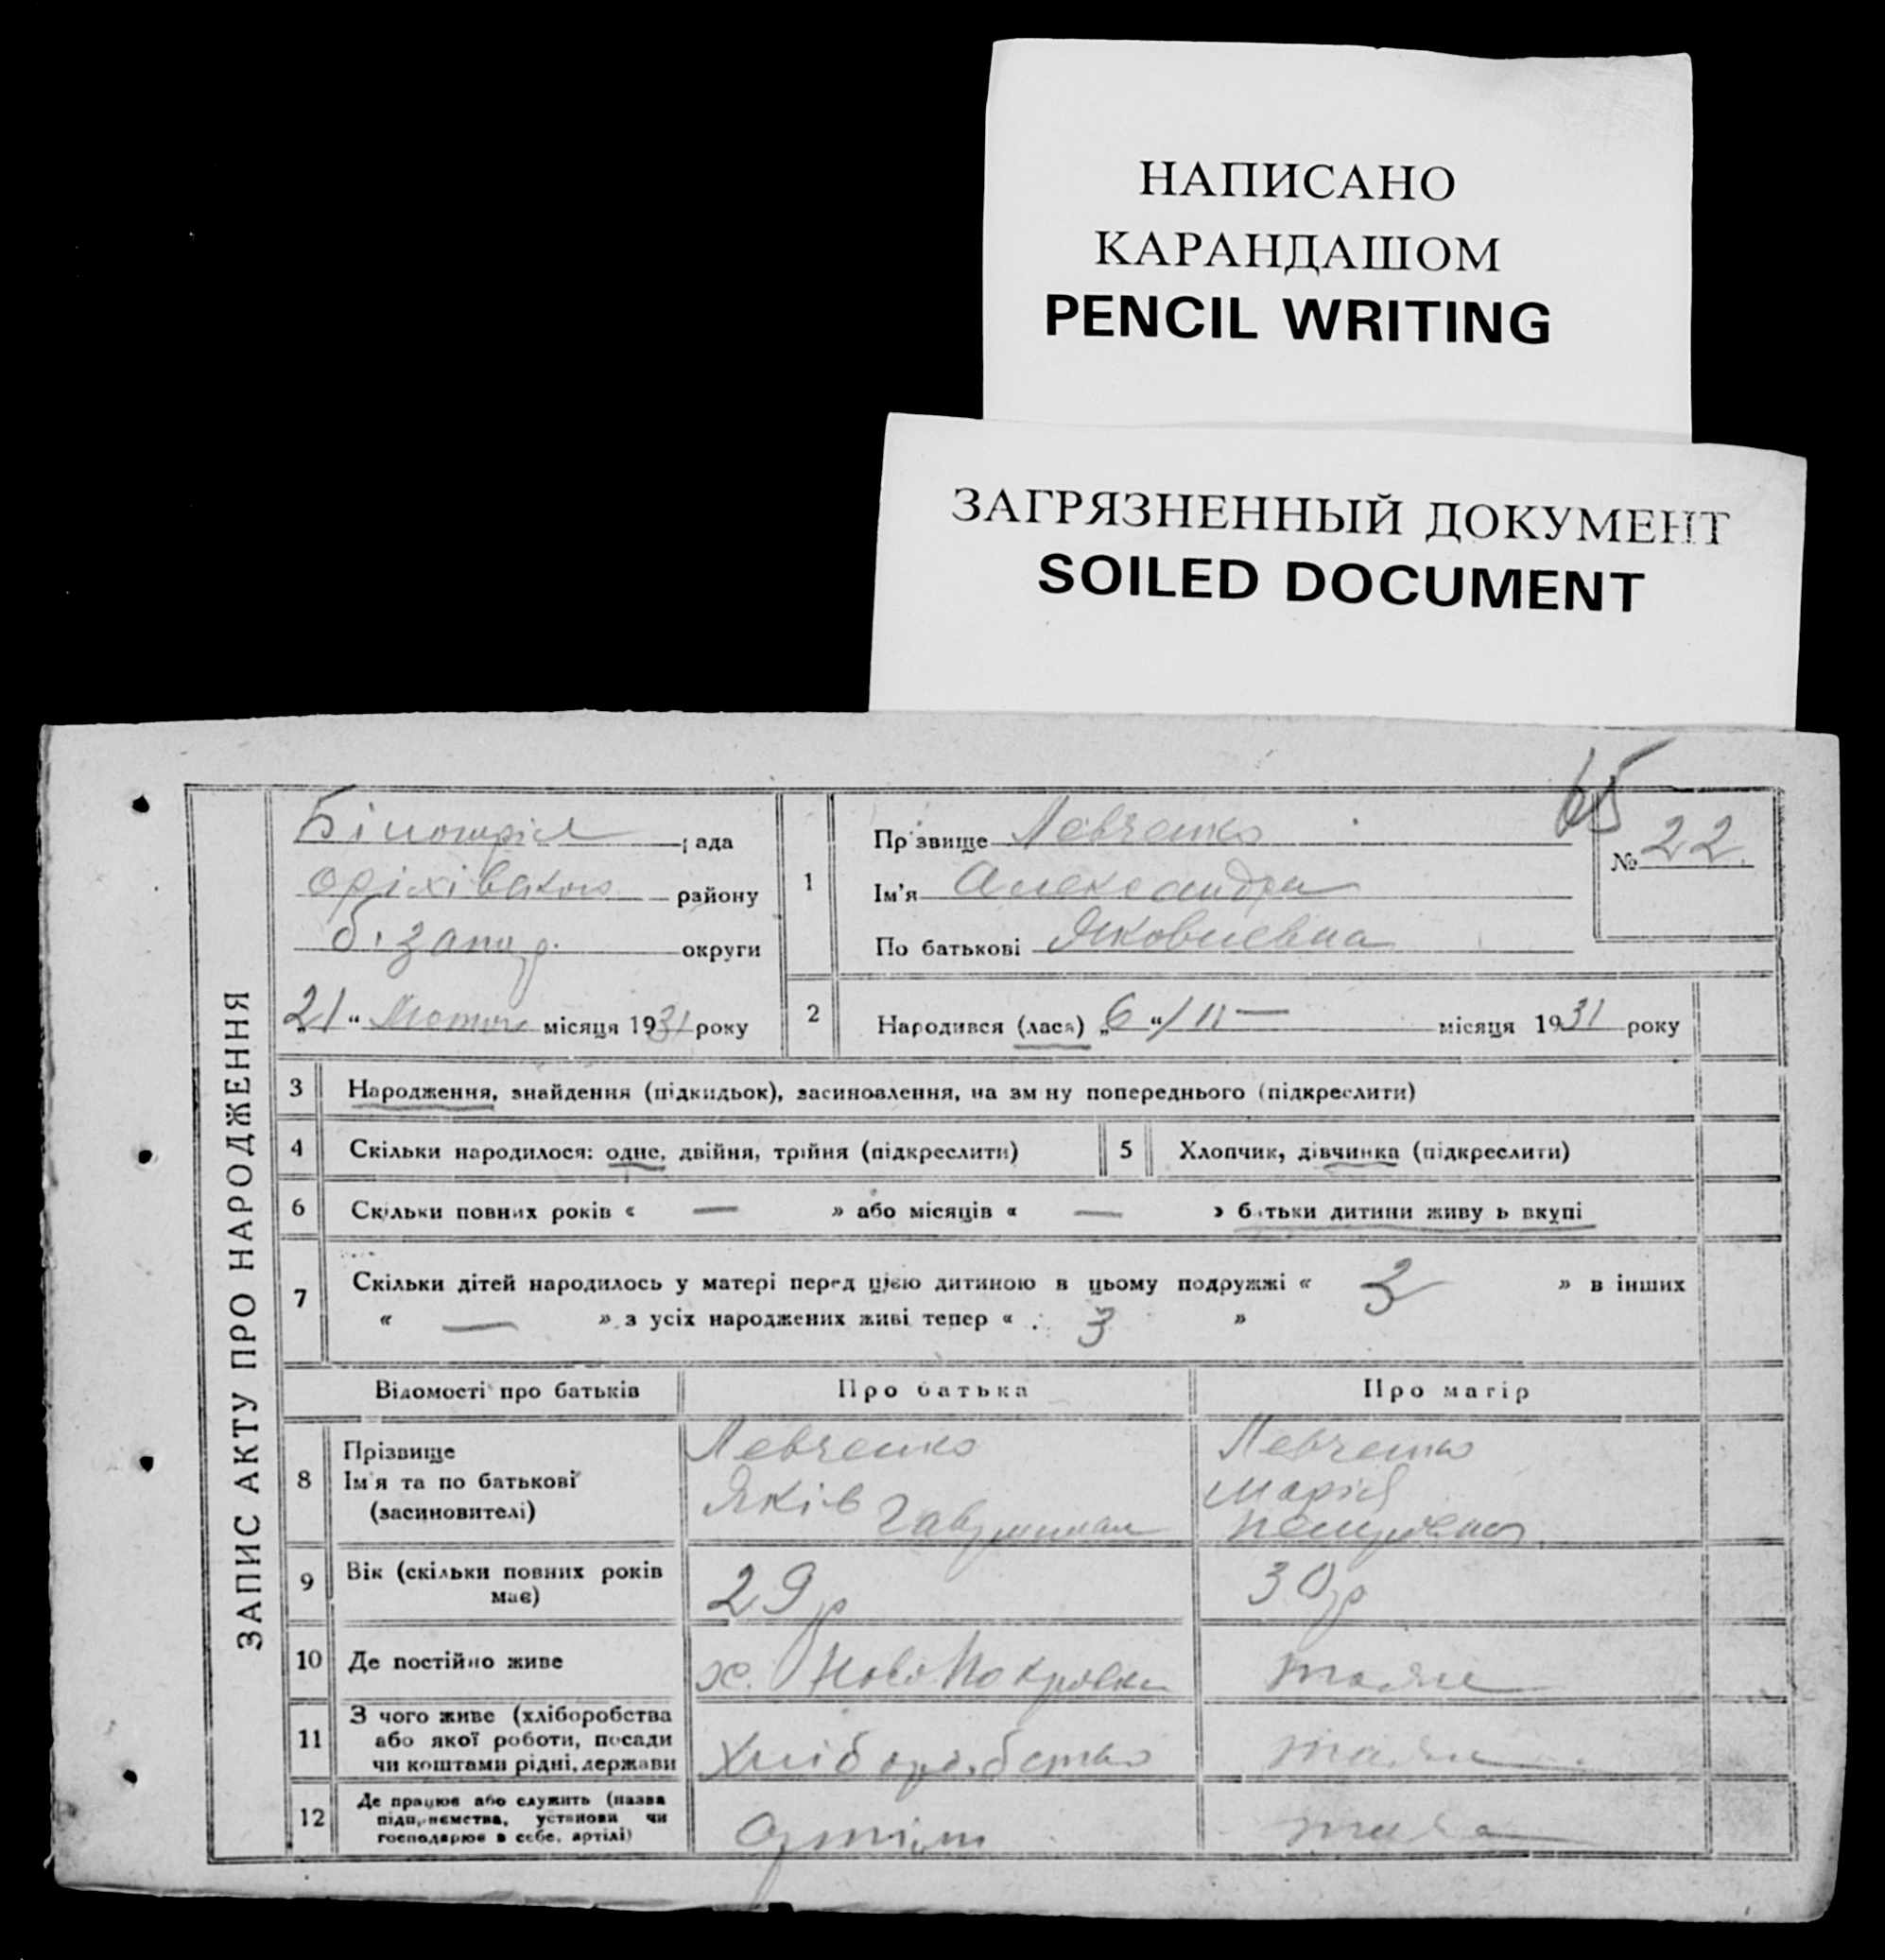 НАПИСАНО
КАРАНДАШОМ
PENCIL WRITING
ЗАГРЯЗНЕННЫЙ ДОКУМЕНТ
SOILED DOCUMENT
65
ЗАПИС АКТУ ПРО НАРОДЖЕННЯ
рада
Оріхівського району
б. Запор. округи
21 " Лютого місяця 1931 року
1
Прізвище Левченко
Ім'я Александра
По батькові Яковлевна
№ 22
2 Народився (лася) „6“/II — місяця 1931 року
3 Народження, знайдення (підкидьок), засиновлення, на зміну попереднього (підкреслити)
4 Скільки народилося: одне, двійня, трійня (підкреслити) 5 Хлопчик, дівчинка (підкреслити)
6 Скільки повних років « — » або місяців « — » батьки дитини живуть вкупі
7 Скільки дітей народилось у матері перед цією дитиною в цьому подружжі « 3 » в інших
« — » з усіх народжених живі тепер « 3 »
Відомості про батьків Про батька Про матір
8 Прізвище Левченко Левченко
Ім'я та по батькові Яків Марія
(засиновителі)
9 Вік (скільки повних років має) 29 р 30 р
10 Де постійно живе х. НовоПокровка таже
11 З чого живе (хліборобства
або якої роботи, посади
чи коштами рідні, держави Хліборобство таже
12 Де працює або служить (назва
підприємства, установи чи
господарює в себе, артілі) Артіль